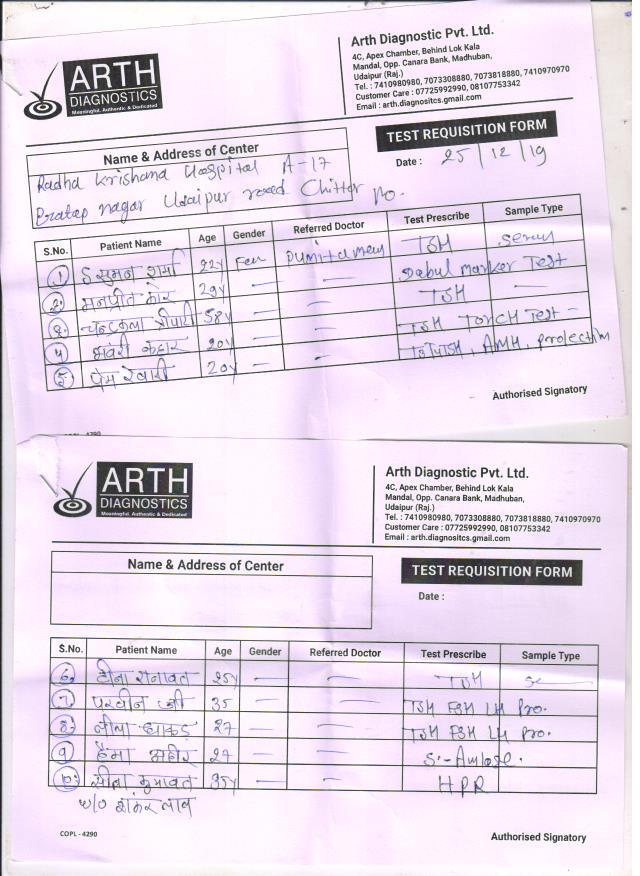 ARTH
DIAGNOSTICS
Meaningful, Authentic & Dedicated
Arth Diagnostic Pvt. Ltd.
4C, Apex Chamber, Behind Lok Kala
Mandal, Opp. Canara Bank, Madhuban,
Udaipur (Raj.)
Tel. : 7410980980, 7073308880, 7073818880, 7410970970
Customer Care : 07725992990, 08107753342
Email : arth.diagnositcs.gmail.com
TEST REQUISITION FORM
Date : 25/12/19
Name & Address of Center
Radha Krishana Hospital A-17
Pratap nagar Udaipur road Chittor
S.No. Patient Name Age Gender Referred Doctor Test Prescribe Sample Type
1 सुमन शर्मा 22y Fem TSH Serum
2 मनप्रीत कौर 29y — — Dabul Marker Test
3 चन्द्रकला त्रिपाठी 58y — — TSH —
4 कहार 20y — — TSH Torch Test —
5 प्रेम रेबारी 20y — — TSH, AMH, Prolectin
Authorised Signatory
COPL - 4290
ARTH
DIAGNOSTICS
Meaningful, Authentic & Dedicated
Arth Diagnostic Pvt. Ltd.
4C, Apex Chamber, Behind Lok Kala
Mandal, Opp. Canara Bank, Madhuban,
Udaipur (Raj.)
Tel. : 7410980980, 7073308880, 7073818880, 7410970970
Customer Care : 07725992990, 08107753342
Email : arth.diagnositcs.gmail.com
Name & Address of Center
TEST REQUISITION FORM
Date :
S.No. Patient Name Age Gender Referred Doctor Test Prescribe Sample Type
6. टीना रानावत 25y — — TSH Se
7. परवीन जी 35 — — TSH FSH LH Pro.
8. नीला धाकड़ 27 — — TSH FSH LH Pro.
9 हेमा अहीर 27 — —
१०. कुमावत 35y — — HPR
w/o शंकर लाल
COPL - 4290
Authorised Signatory